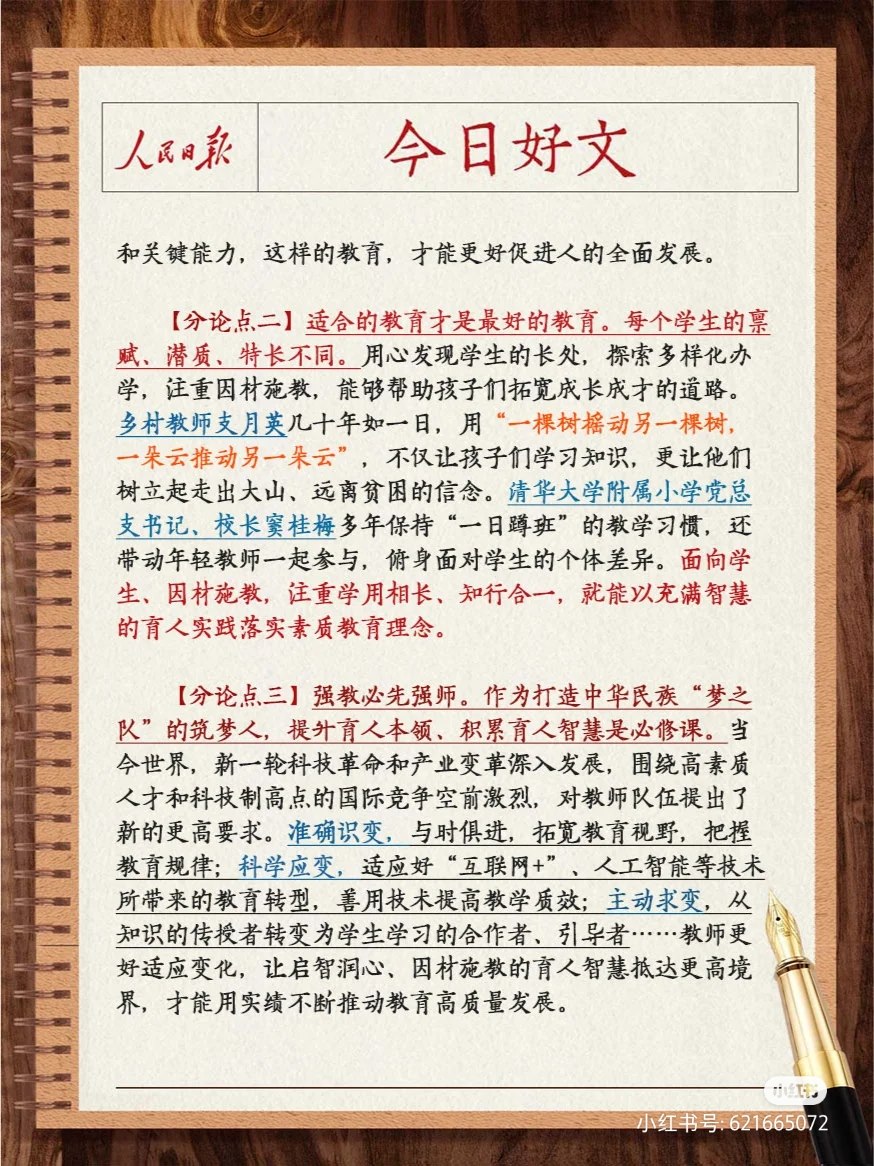 人民日报
今日好文
和关键能力，这样的教育，才能更好促进人的全面发展。
【分论点二】适合的教育才是最好的教育。每个学生的禀
赋、潜质、特长不同。用心发现学生的长处，探索多样化办
学，注重因材施教，能够帮助孩子们拓宽成长成才的道路。
乡村教师支月英几十年如一日，用“一棵树摇动另一棵树，
一朵云推动另一朵云”，不仅让孩子们学习知识，更让他们
树立起走出大山、远离贫困的信念。清华大学附属小学党总
支书记、校长窦桂梅多年保持“一日蹲班”的教学习惯，还
带动年轻教师一起参与，俯身面对学生的个体差异。面向学
生、因材施教，注重学用相长、知行合一，就能以充满智慧
的育人实践落实素质教育理念。
【分论点三】强教必先强师。作为打造中华民族“梦之
队”的筑梦人，提升育人本领、积累育人智慧是必修课。当
今世界，新一轮科技革命和产业变革深入发展，围绕高素质
人才和科技制高点的国际竞争空前激烈，对教师队伍提出了
新的更高要求。准确识变，与时俱进，拓宽教育视野，把握
教育规律；科学应变，适应好“互联网+”、人工智能等技术
所带来的教育转型，善用技术提高教学质效；主动求变，从
知识的传授者转变为学生学习的合作者、引导者……教师更
好适应变化，让启智润心、因材施教的育人智慧抵达更高境
界，才能用实绩不断推动教育高质量发展。
小红书
小红书号: 621665072